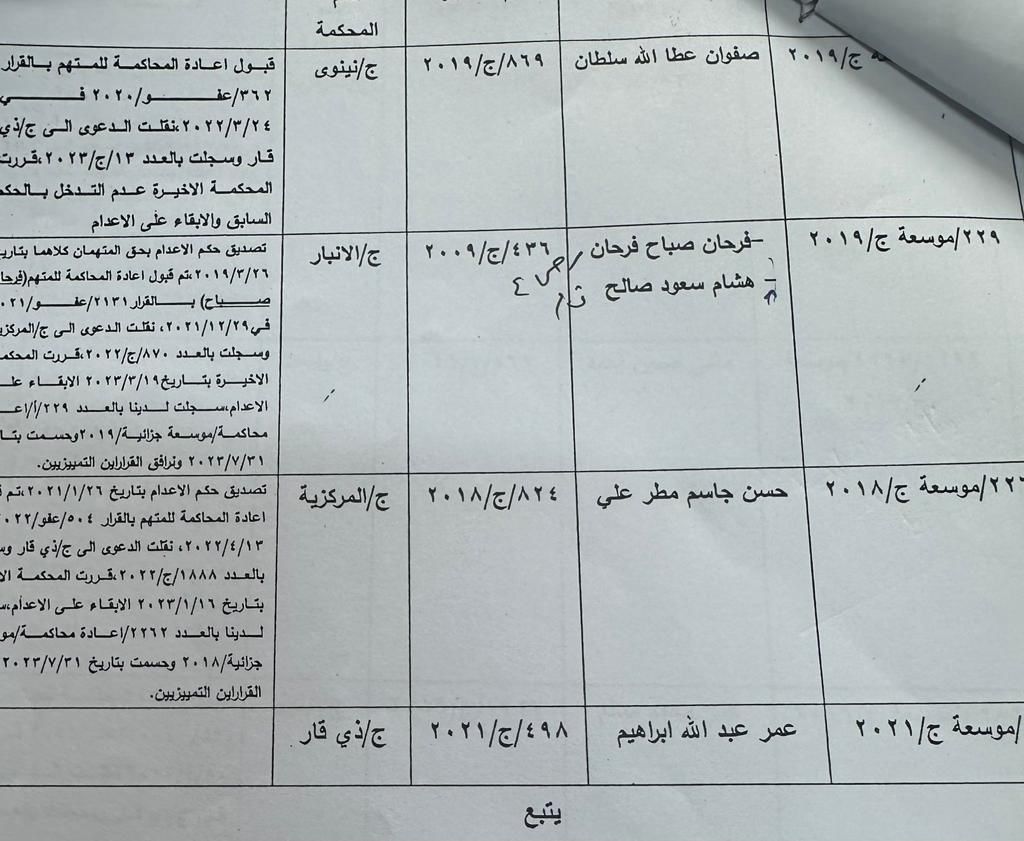 المحكمة
ج/٢٠١٩
صفوان عطا الله سلطان
٨٦٩/ج/٢٠١٩
ج/نينوى
قبول اعادة المحاكمة للمتهم بالقرار
٣٦٢/عفو/٢٠٢٠ في
٢٠٢٢/٣/٢٤،نقلت الدعوى الى ج/ذي
قار وسجلت بالعدد ١٣/ج/٢٠٢٣،قررت
المحكمة الاخيرة عدم التدخل بالحكم
السابق والابقاء على الاعدام
٢٢٩/موسعة ج/٢٠١٩
–فرحان صباح فرحان
– هشام سعود صالح
٤٣٦/ج/٢٠٠٩
ج/الانبار
تصديق حكم الاعدام بحق المتهمان كلاهما بتاريخ
٢٠١٩/٣/٢٦،تم قبول اعادة المحاكمة للمتهم(فرحان
صباح) بالقرار ٢١٣١/عفو/٢٠٢١
في٢٠٢١/١٢/٢٩، نقلت الدعوى الى ج/المركزية
وسجلت بالعدد ٨٧٠/ج/٢٠٢٢،قررت المحكمة
الاخيرة بتاريخ٢٠٢٣/٣/١٩ الابقاء على
الاعدام،سجلت لدينا بالعدد ٢٢٩/أ/اع
محاكمة/موسعة جزائية/٢٠١٩وحسمت بتا
٢٠٢٣/٧/٣١ ونرافق القراراين التمييزيين.
موسعة ج/٢٠١٨
حسن جاسم مطر علي
٨٢٤/ج/٢٠١٨
ج/المركزية
تصديق حكم الاعدام بتاريخ ٢٠٢١/١/٢٦،تم
اعادة المحاكمة للمتهم بالقرار ٥٠٤/عفو/٢٠٢٢
٢٠٢٢/٤/١٣، نقلت الدعوى الى ج/ذي قار
بالعدد ١٨٨٨/ج/٢٠٢٢،قررت المحكمة
بتاريخ ٢٠٢٣/١/١٦ الابقاء على الاعدام،
لدينا بالعدد ٢٢٦٢/اعادة محاكمة/مو
جزائية/٢٠١٨ وحسمت بتاريخ ٢٠٢٣/٧/٣١
القراراين التمييزيين.
/موسعة ج/٢٠٢١
عمر عبد الله ابراهيم
٤٩٨/ج/٢٠٢١
ج/ذي قار
يتبع